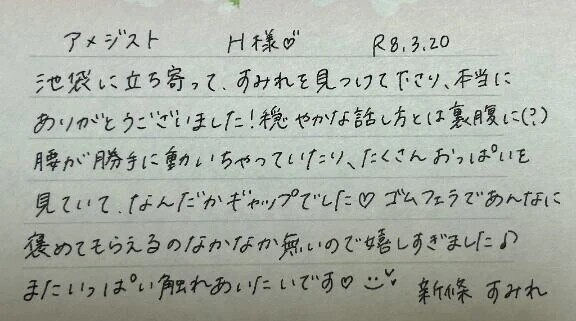 アメジスト H様♡ R8.3.20
池袋に立ち寄って、すみれを見つけて下さり、本当に
ありがとうございました！穏やかな話し方とは裏腹に(?)
腰が勝手に動いちゃっていたり、たくさんおっぱいを
見ていて、なんだかギャップでした♡ ゴムフェラであんなに
褒めてもらえるのなかなか無いので嬉しすぎました♪
またいっぱい触れあいたいです♡ 新條 すみれ